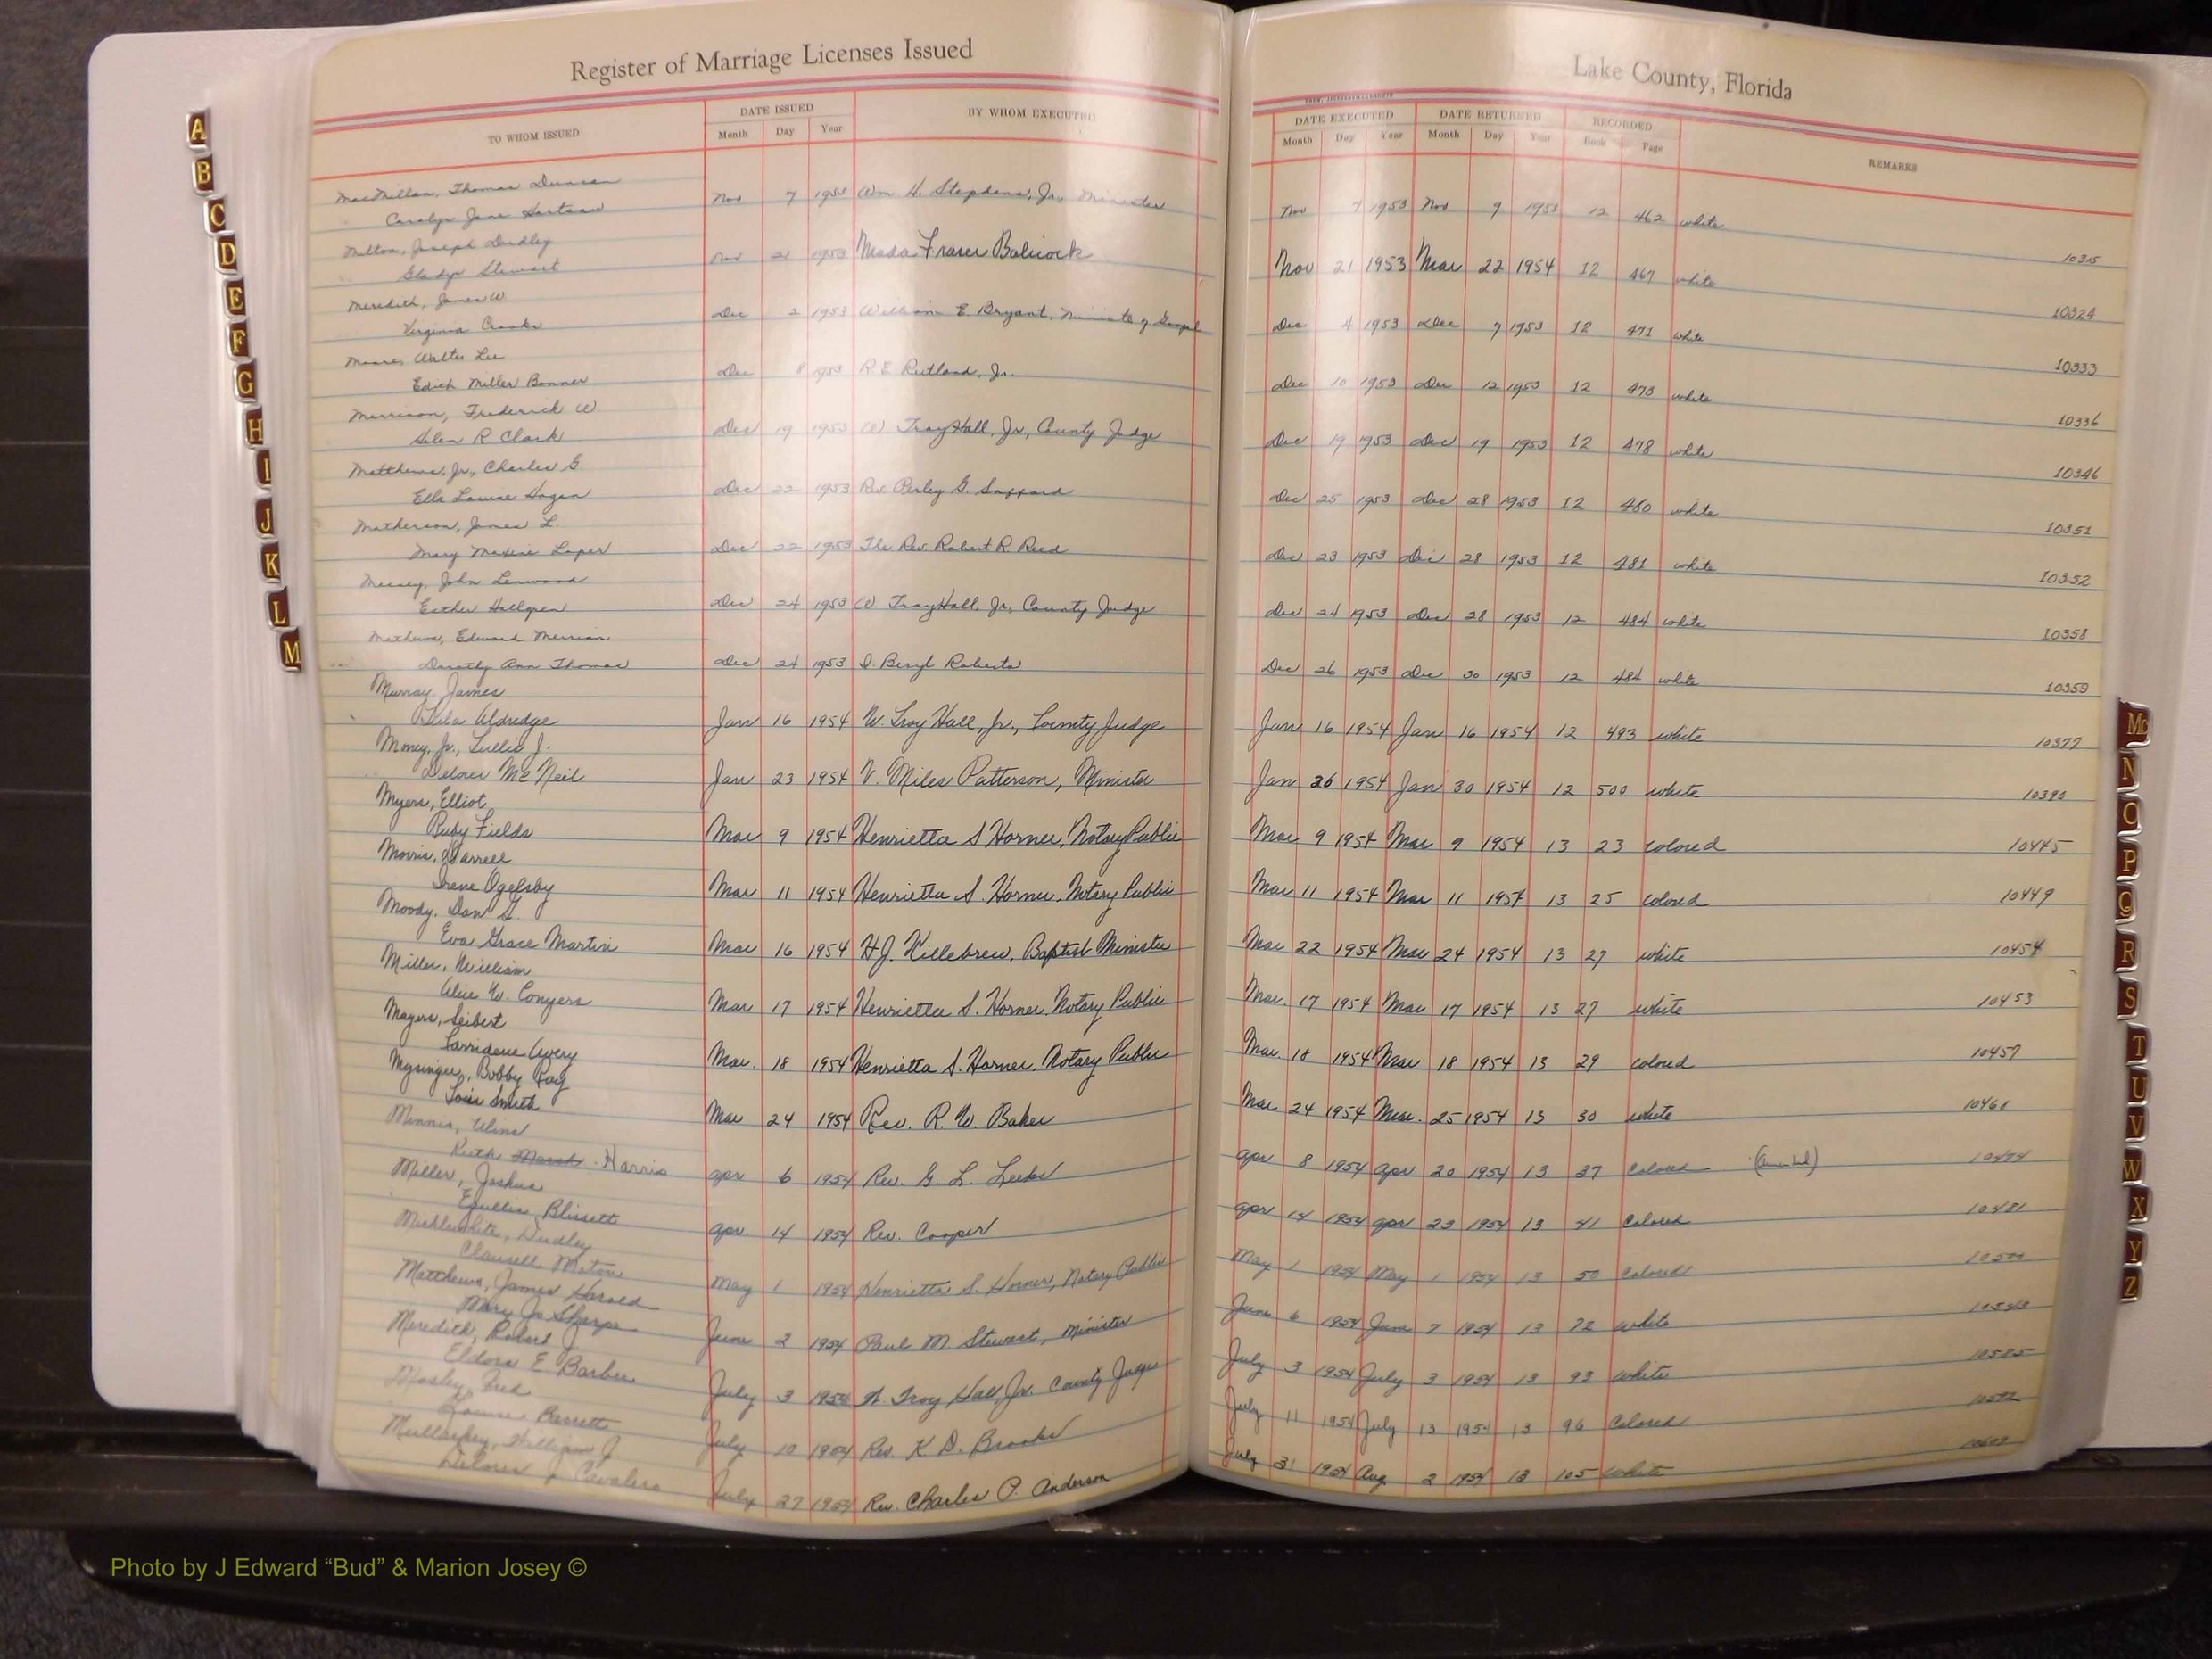 Register of Marriage Licenses Issued
Lake County, Florida
TO WHOM ISSUED
DATE ISSUED
Month Day Year
BY WHOM EXECUTED
DATE EXECUTED
Month Day Year
DATE RETURNED
Month Day Year
RECORDED
Book Page
REMARKS
MacMillan, Thomas Duncan
Carolyn Jane
Nov 7 Wm. H. Stephens, Jr., Minister Nov 7 1953 Nov 9 1953 12 462 white 10315
Milton, Joseph Dudley
Gladys Stewart
Nov 21 1953 Nov 21 1953 Mar 22 1954 12 467 white 10324
Meredith, James W
Virginia
Dec 2 1953 William E. Bryant, Dec 4 1953 Dec 7 1953 12 471 white 10333
Moore, Walter Lee
Edith Miller Bonner
Dec 8 1953 R E Rutland, Jr. Dec 10 1953 Dec 12 1953 12 473 white 10336
Morrison, Frederick W
Helen R. Clark
Dec 19 1953 W Troy Hall, Jr., County Judge Dec 19 1953 Dec 19 1953 12 478 white 10346
Matthews, Jr., Charles G
Ella Louise Hogan
Dec 22 1953 Rev. Perley G. Dec 25 1953 Dec 28 1953 12 480 white 10351
Matherson, James L.
Mary Maxine Loper
Dec 22 1953 The Rev. Robert R. Reed Dec 23 1953 Dec 28 1953 12 481 white 10352
John Lenwood
Esther Hallgren
Dec 24 1953 W Troy Hall, Jr., County Judge Dec 24 1953 Dec 28 1953 12 484 white 10358
Mathews, Edward Merriam
Dorothy Ann Thomas
Dec 24 1953 Beryl Roberts Dec 26 1953 Dec 30 1953 12 484 white 10359
Murray, James
Aldredge
Jan 16 1954 W. Troy Hall, Jr., County Judge Jan 16 1954 Jan 16 1954 12 493 white 10377
Money, Jr.,
Mc Neil
Jan 23 1954 V. Miles Patterson, Minister Jan 26 1954 Jan 30 1954 12 500 white 10390
Myers, Elliot
Ruby Fields
Mar 9 1954 Henrietta S Horner, Notary Public Mar 9 1954 Mar 9 1954 13 23 colored 10445
Morris,
Irene Ogelsby
Mar 11 1954 Henrietta S. Horner, Notary Public Mar 11 1954 Mar 11 1954 13 25 colored 10449
Moody, Dan
Eva Grace Martin
Mar 16 1954 H.J. Killebrew, Baptist Minister Mar 22 1954 Mar 24 1954 13 27 white 10454
Miller, William
Alice W. Conyers
Mar 17 1954 Henrietta S. Horner, Notary Public Mar. 17 1954 Mar 17 1954 13 27 white 10453
Mayers, Seibert
Avery
Mar. 18 1954 Henrietta S. Horner, Notary Public Mar. 18 1954 Mar 18 1954 13 29 colored 10457
Mysinger, Bobby Ray
Lois Smith
Mar 24 1954 Rev. R. W. Baker Mar 24 1954 Mar. 25 1954 13 30 white
Minnis,
Ruth Harris
Apr 6 1954 Rev. G. L. Apr 8 1954 Apr 20 1954 13 37 Colored (Amended)
Miller, Joshua
Blissett
Apr. 14 1954 Rev. Cooper Apr 14 1954 Apr 23 1954 13 41 Colored 10481
Micklewhite, Dudley
May 1 1954 Henrietta S. Horner, Notary Public May 1 1954 May 1 1954 13 50 Colored
Matthews, James Harold
Mary Jo Sharpe
June 2 1954 Paul M Stewart, Minister June 6 1954 June 7 1954 13 72 white
Meredith, Robert J
Eldora E. Barber
July 3 1954 W. Troy Hall, Jr. County Judge July 3 1954 July 3 1954 13 93 white 10585
Mosley, Fred
Louise Barrett
July 10 1954 Rev. K. D. Brooks July 11 1954 July 13 1954 13 96 Colored 10592
William J
Delores J Cavalero
July 27 1954 Rev. Charles P. Anderson July 31 1954 Aug 2 1954 13 105 White
A
B
C
D
E
F
G
H
I
J
K
L
M
Mc
N
O
P
Q
R
S
T
U
V
W
X
Y
Z
Photo by J Edward “Bud” & Marion Josey ©